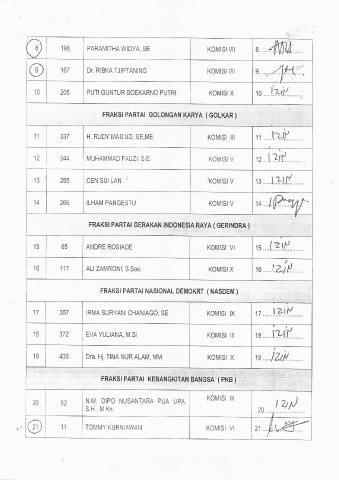 8 196 PARAMITHA WIDYA, SE KOMISI VII 8
9 167 Dr. RIBKA TJIPTANING KOMISI VII 9
10 205 PUTI GUNTUR SOEKARNO PUTRI KOMISI X 10 IZIN
FRAKSI PARTAI GOLONGAN KARYA ( GOLKAR )
11 337 H. RUDY MAS'UD, SE,ME. KOMISI III 11 IZIN
12 344 MUHAMMAD FAUZI, S.E. KOMISI V 12 IZIN
13 285 CEN SUI LAN KOMISI V 13 IZIN
14 266 ILHAM PANGESTU KOMISI V 14
FRAKSI PARTAI GERAKAN INDONESIA RAYA ( GERINDRA )
15 65 ANDRE ROSIADE KOMISI VI 15 IZIN
16 117 ALI ZAMRONI, S.Sos. KOMISI X 16 IZIN
FRAKSI PARTAI NASIONAL DEMOKRT ( NASDEM )
17 357 IRMA SURYANI CHANIAGO, SE KOMISI IX 17 IZIN
18 372 EVA YULIANA, M.Si KOMISI III 18 IZIN
19 400 Dra. Hj. TINA NUR ALAM, MM. KOMISI X 19 IZIN
FRAKSI PARTAI KEBANGKITAN BANGSA ( PKB )
20 52 N.M. DIPO NUSANTARA PUA UPA, S.H., M.Kn. KOMISI III 20 IZIN
21 11 TOMMY KURNIAWAN KOMISI VI 21